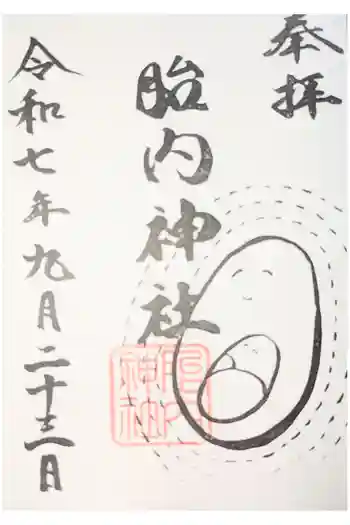 奉拝
胎内神社
胎内神社
令和七年九月二十三日